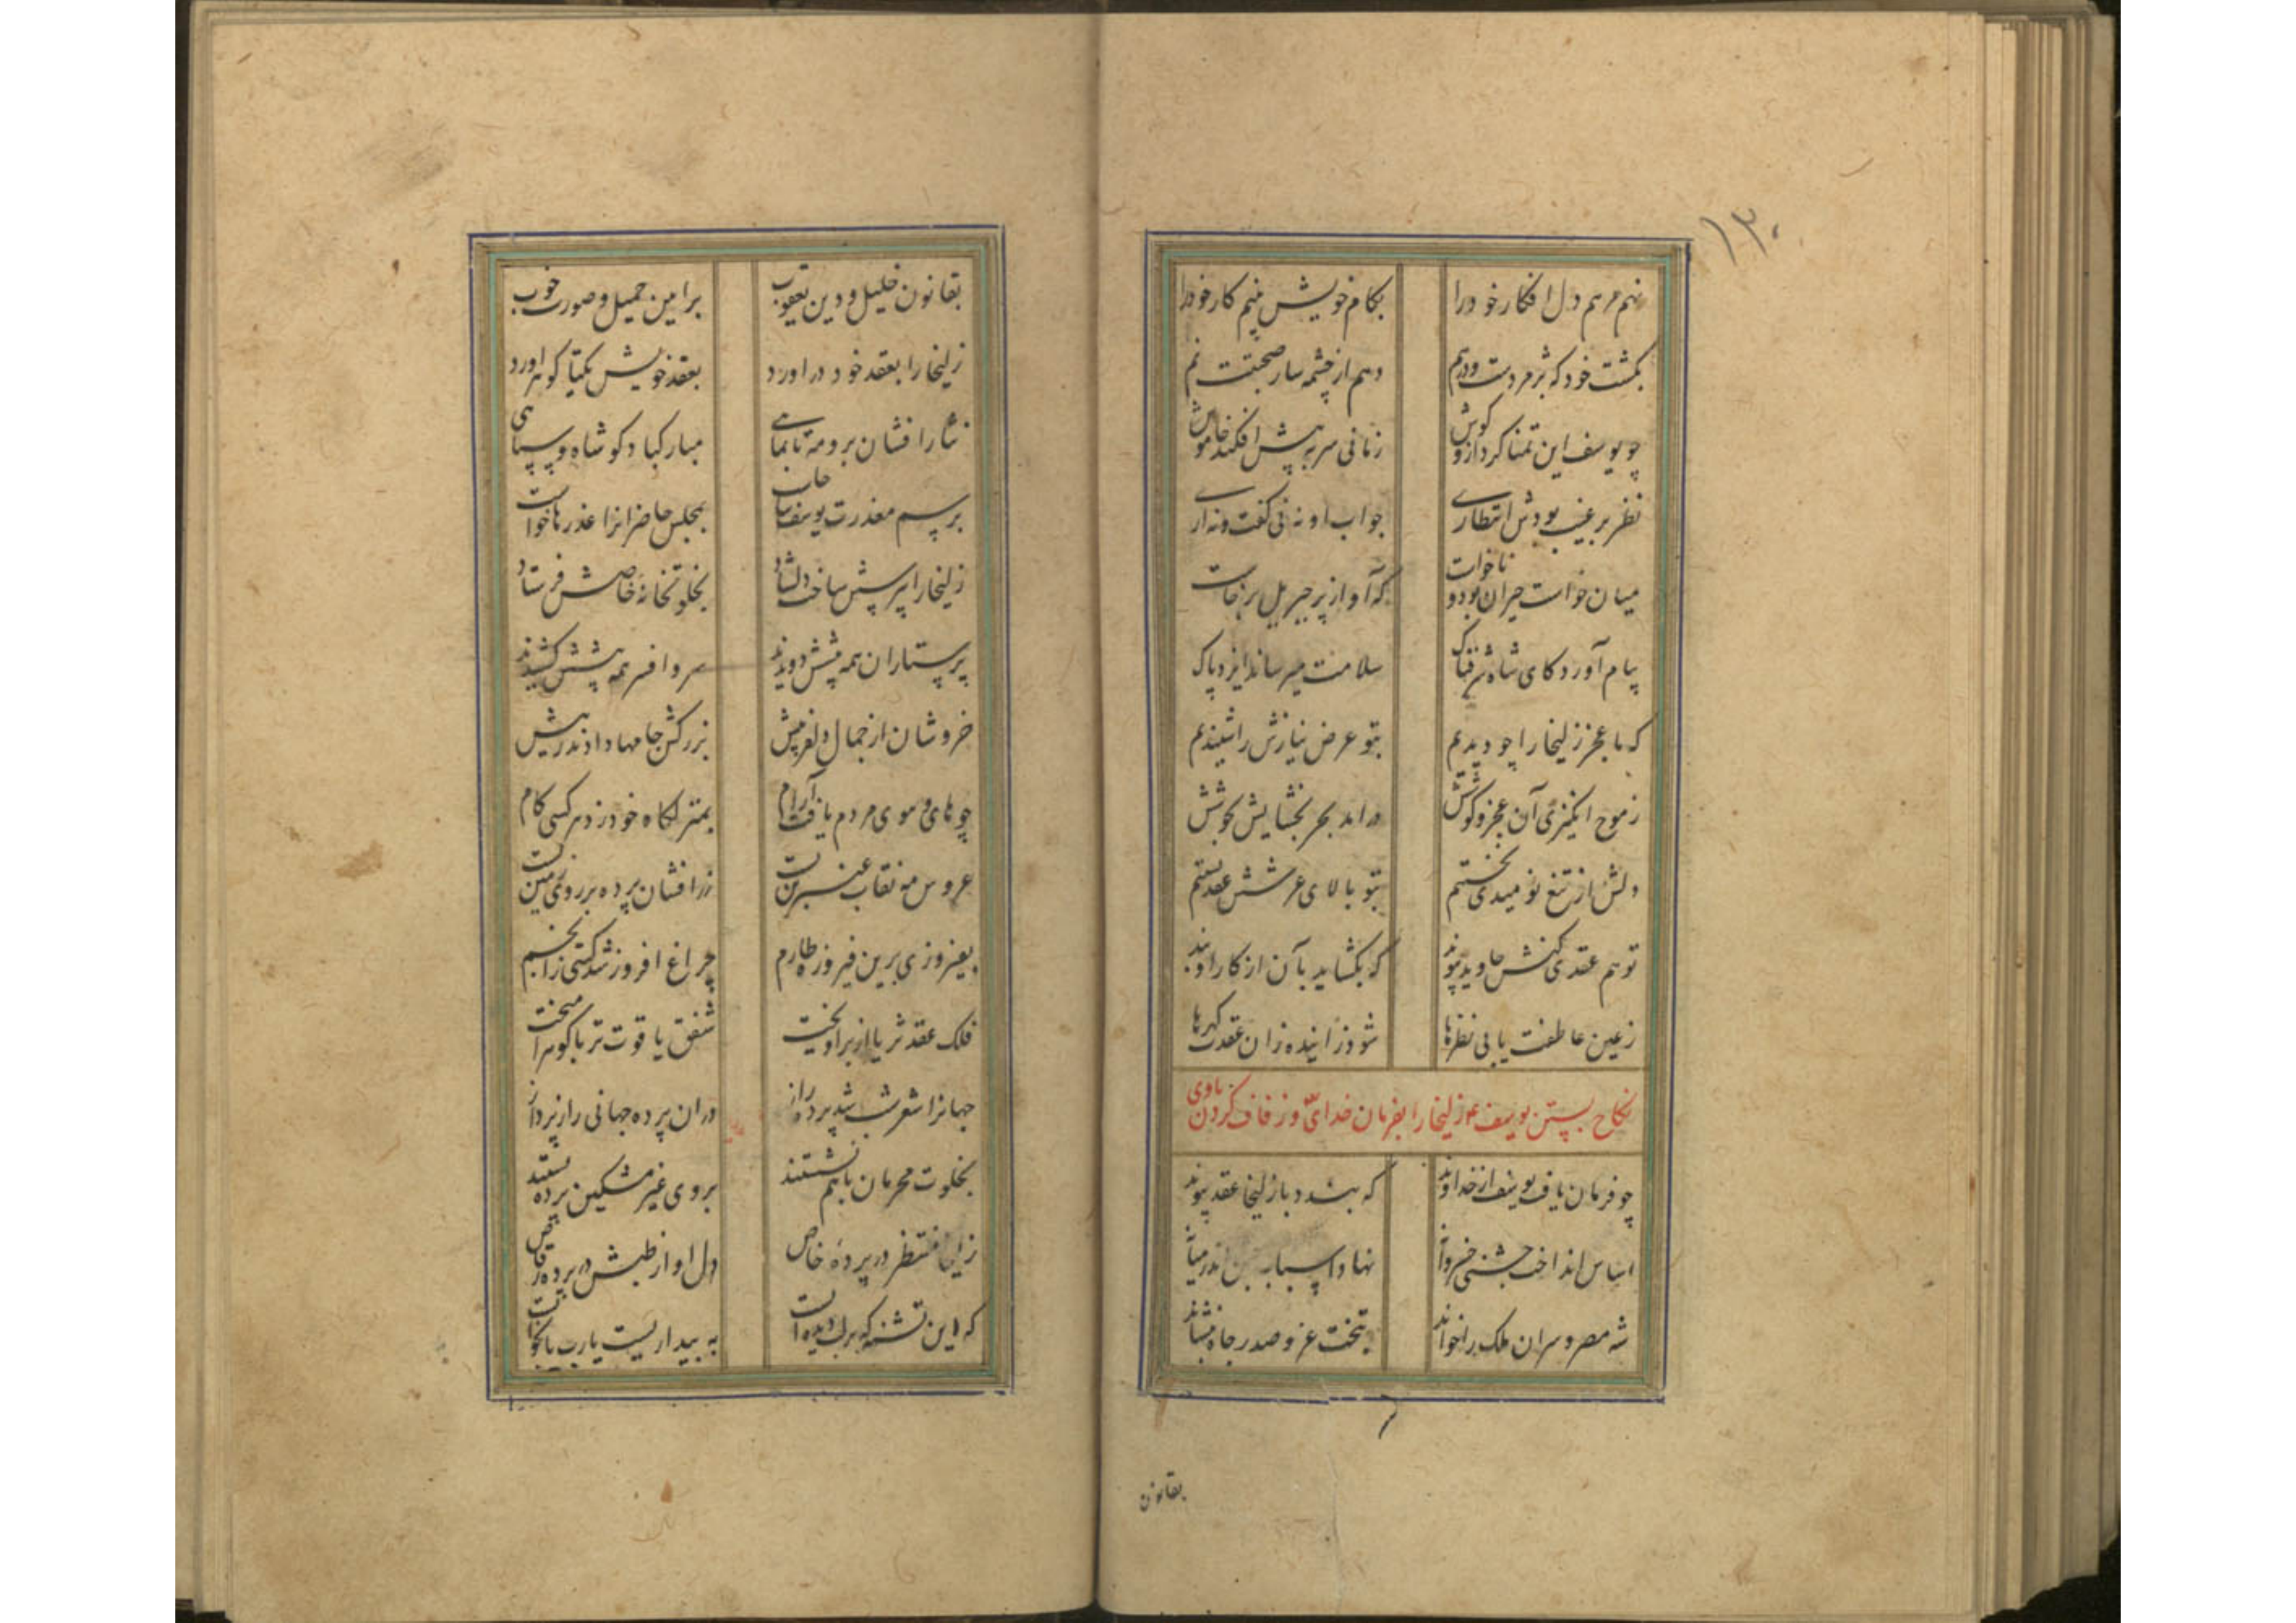 ۱۳۰
نهم مرهم دل افکار خود را بکام خویش بینم کار خود را
بکشت خود که پژمردست و درهم دهم از چشمه سار صحبتت نم
چو یوسف این تمنا کرد ازو گوش زمانی سر به پیش افکند خاموش
نظر بر غیب بودش انتظاری جواب او نه نی گفت و نه آری
میان خواست حیران بود و ناخواست که آواز پر جبریل برخاست
پیام آورد کای شاه شرفناک سلامت میرساند ایزد پاک
که ما عجز زلیخا را چو دیدیم بتو عرض نیازش را شنیدیم
ز موج انگیزی آن عجز و کوشش درآمد بحر بخشایش بجوشش
دلش از تیغ نومیدی نخستیم بتو بالای عرشش عقد بستیم
تو هم عقدی کنش جاوید پیوند که بگشاید بآن از کار او بند
ز عین عاطفت یابی نظرها شود زاینده زان عقدت گهرها
نکاح بستن یوسف ع زلیخا را بفرمان خدای و زفاف کردن باوی
چو فرمان یافت یوسف از خداوند که بندد با زلیخا عقد پیوند
اساس انداخت جشنی خسروانه نهاد اسباب جشن اندر میانه
شه مصر و سران ملک را خواند بتخت عز و صدر جاه بنشاند
بقانون
بقانون خلیل و دین یعقوب برایین جمیل و صورت خوب
زلیخا را بعقد خود در اورد بعقد خویش یکتا گوهر اورد
نثار افشان برو مه تا بماهی مبارکباد گو شاه و سپاهی
برسم معذرت یوسف بپا خاست بمجلس حاضرانرا عذرها خواست
زلیخا را بپرسش ساخت دلشاد بخلوتخانه خاصش فرستاد
پرستاران همه پیشش دویدند سر و افسر همه پیشش کشیدند
خروشان از جمال دلفریبش بزرکش جامها دادند زیبش
چو های و هوی مردم یافت آرام بمنزلگاه خود زد هر کسی گام
عروس مه نقاب عنبرین بست زرافشان پرده بر روی زمین بست
بفیروزی برین فیروزه طارم چراغ افروز شد گیتی ز انجم
فلک عقد ثریا از بر آویخت شفق یاقوت تر با گوهر آمیخت
جهانرا شعر شب شد پرده راز در ان پرده جهانی راز پرداز
بخلوت محرمان با هم نشستند بروی غیر مشکین پرده بستند
زلیخا منتظر در پرده خاص دل او از طپش در پرده رقاص
که این تشنه که بر لب دیده است به بیداریست یارب یا بخوابست